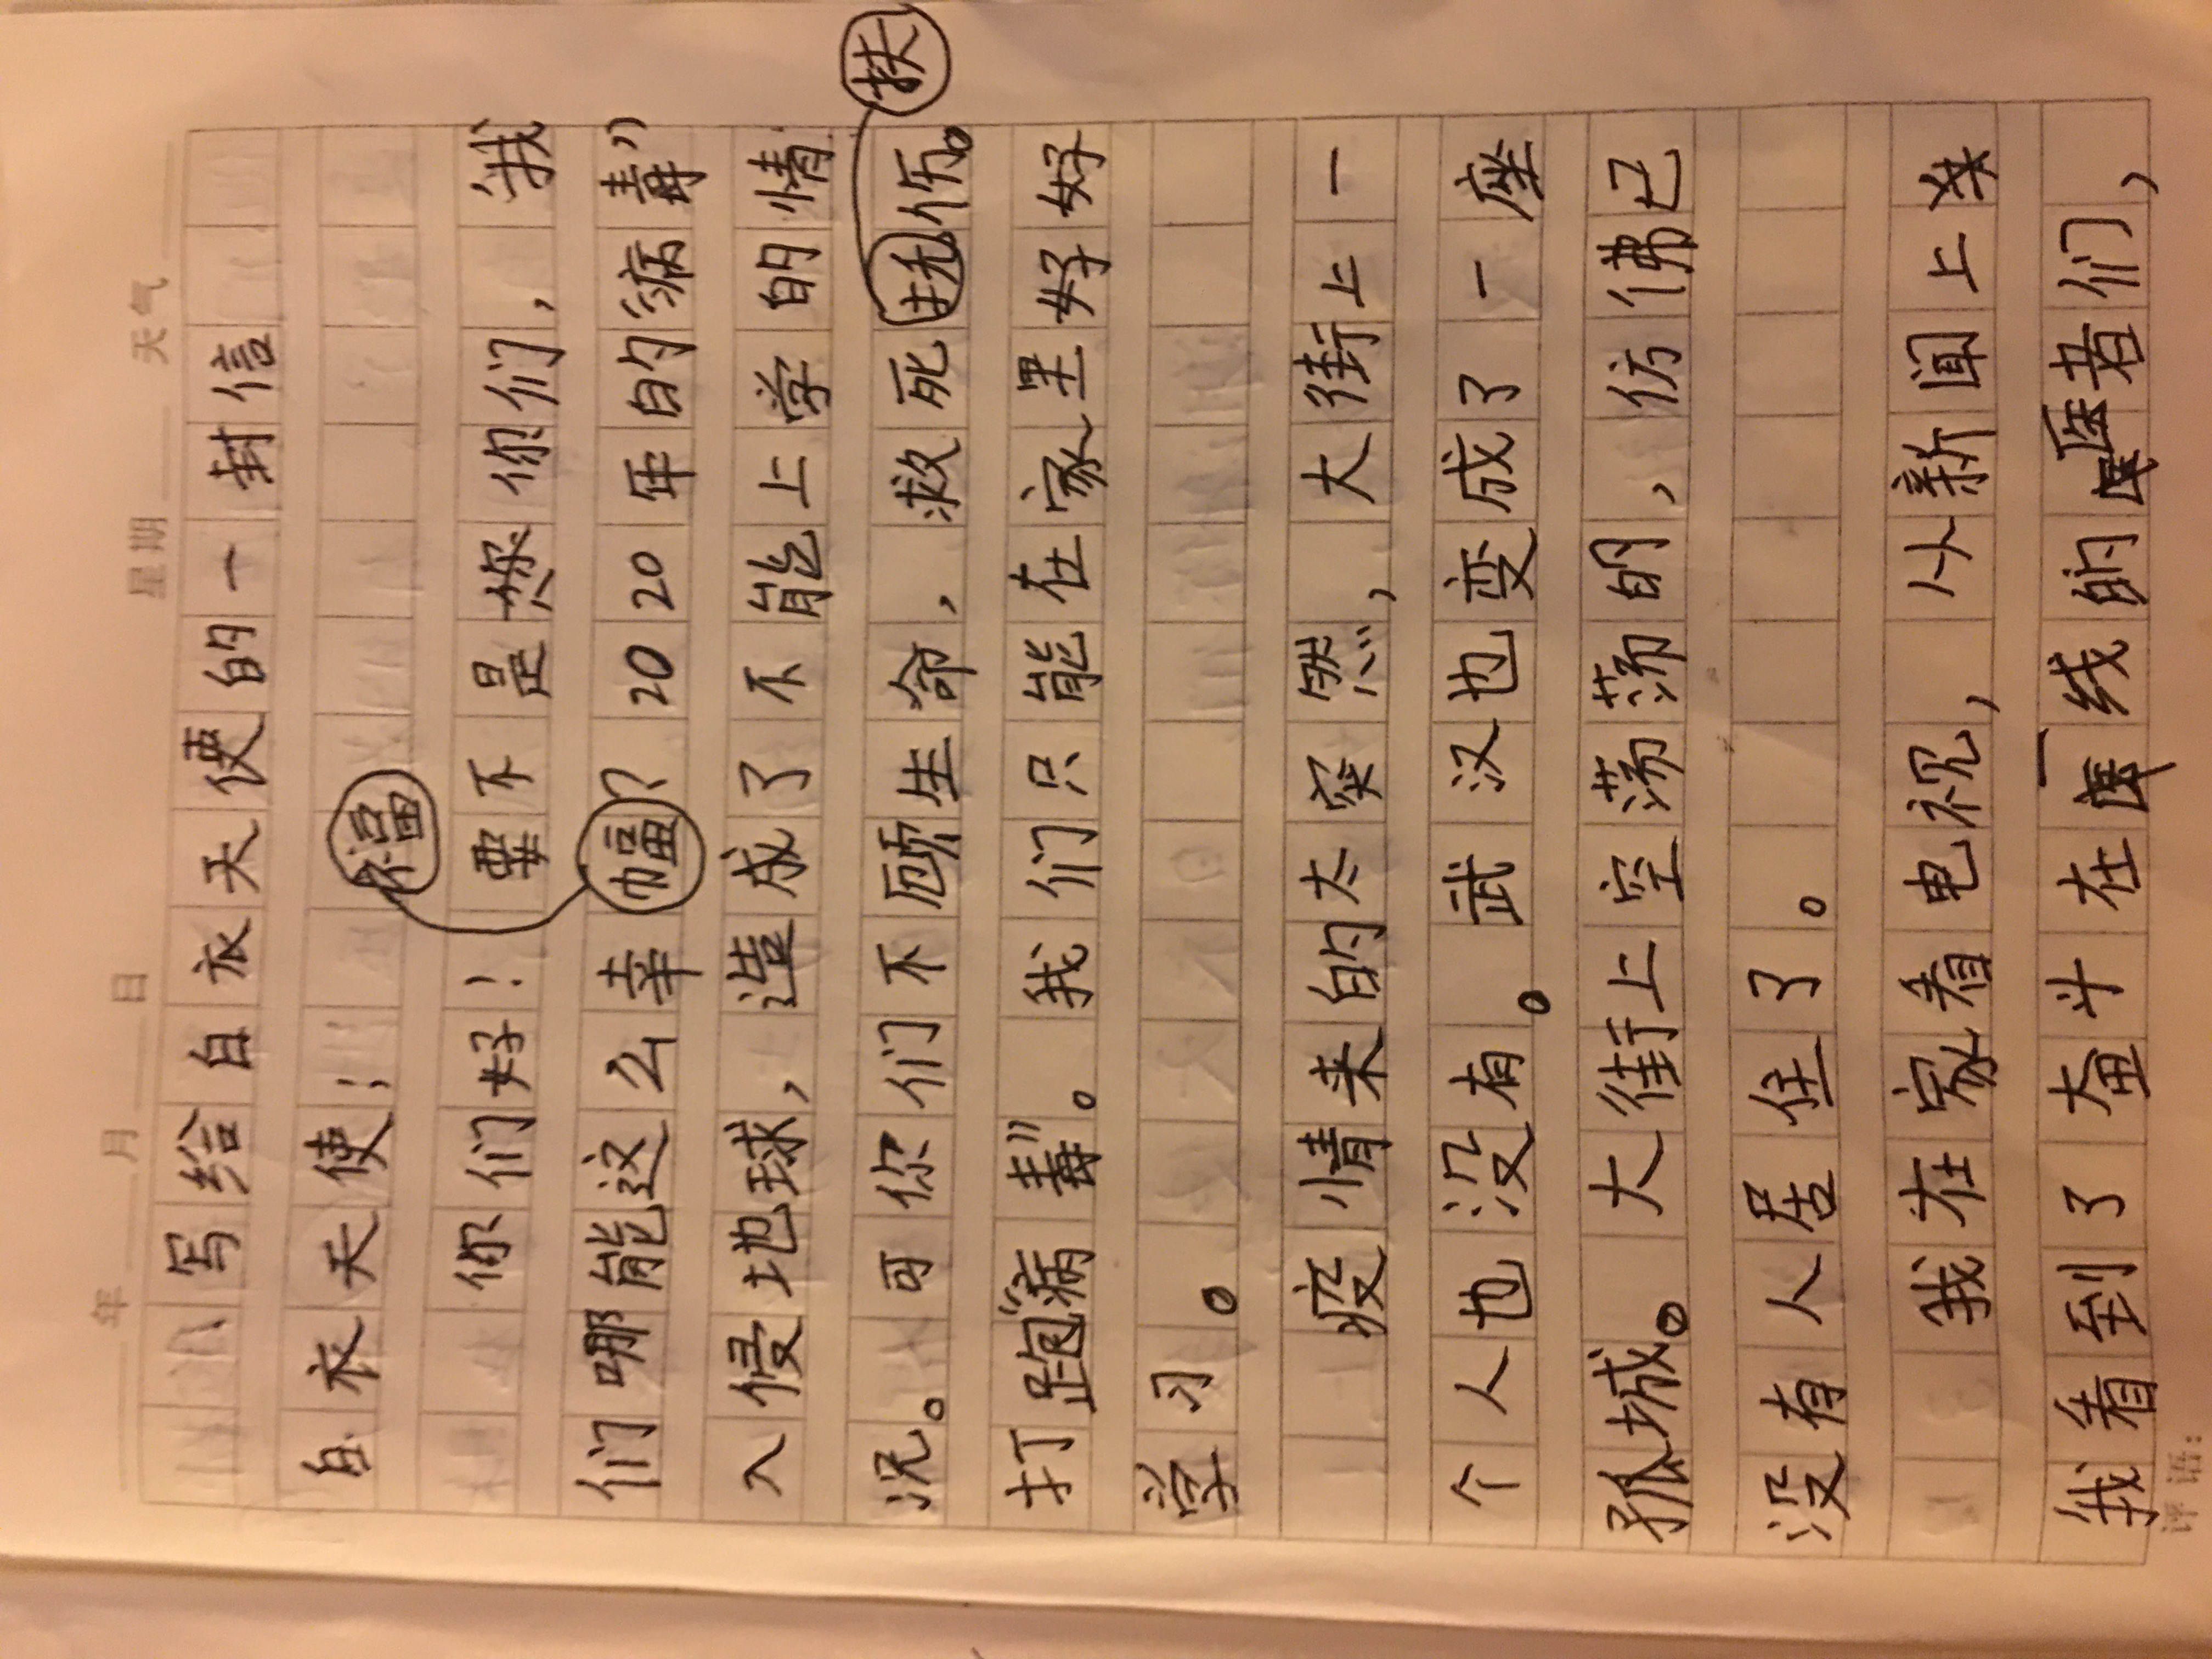 年 月 日 星期 天气
写给白衣天使的一封信
白衣天使:
福
你们好!要不是您你们,我
们哪能这么幸幅?2020年的“病毒”
入侵地球,造成了不能上学的情
扶
况。可你们不顾生命,救死抚伤。
打跑“病毒”。我们只能在家里好好
学习。
疫情来的太突然,大街上一
个人也没有。武汉也变成了一座
孤城。大街上空荡荡的,仿佛已
没有人居住了。
我在家看电视,从新闻上来
我看到了奋斗在一线的医者们,
评语: